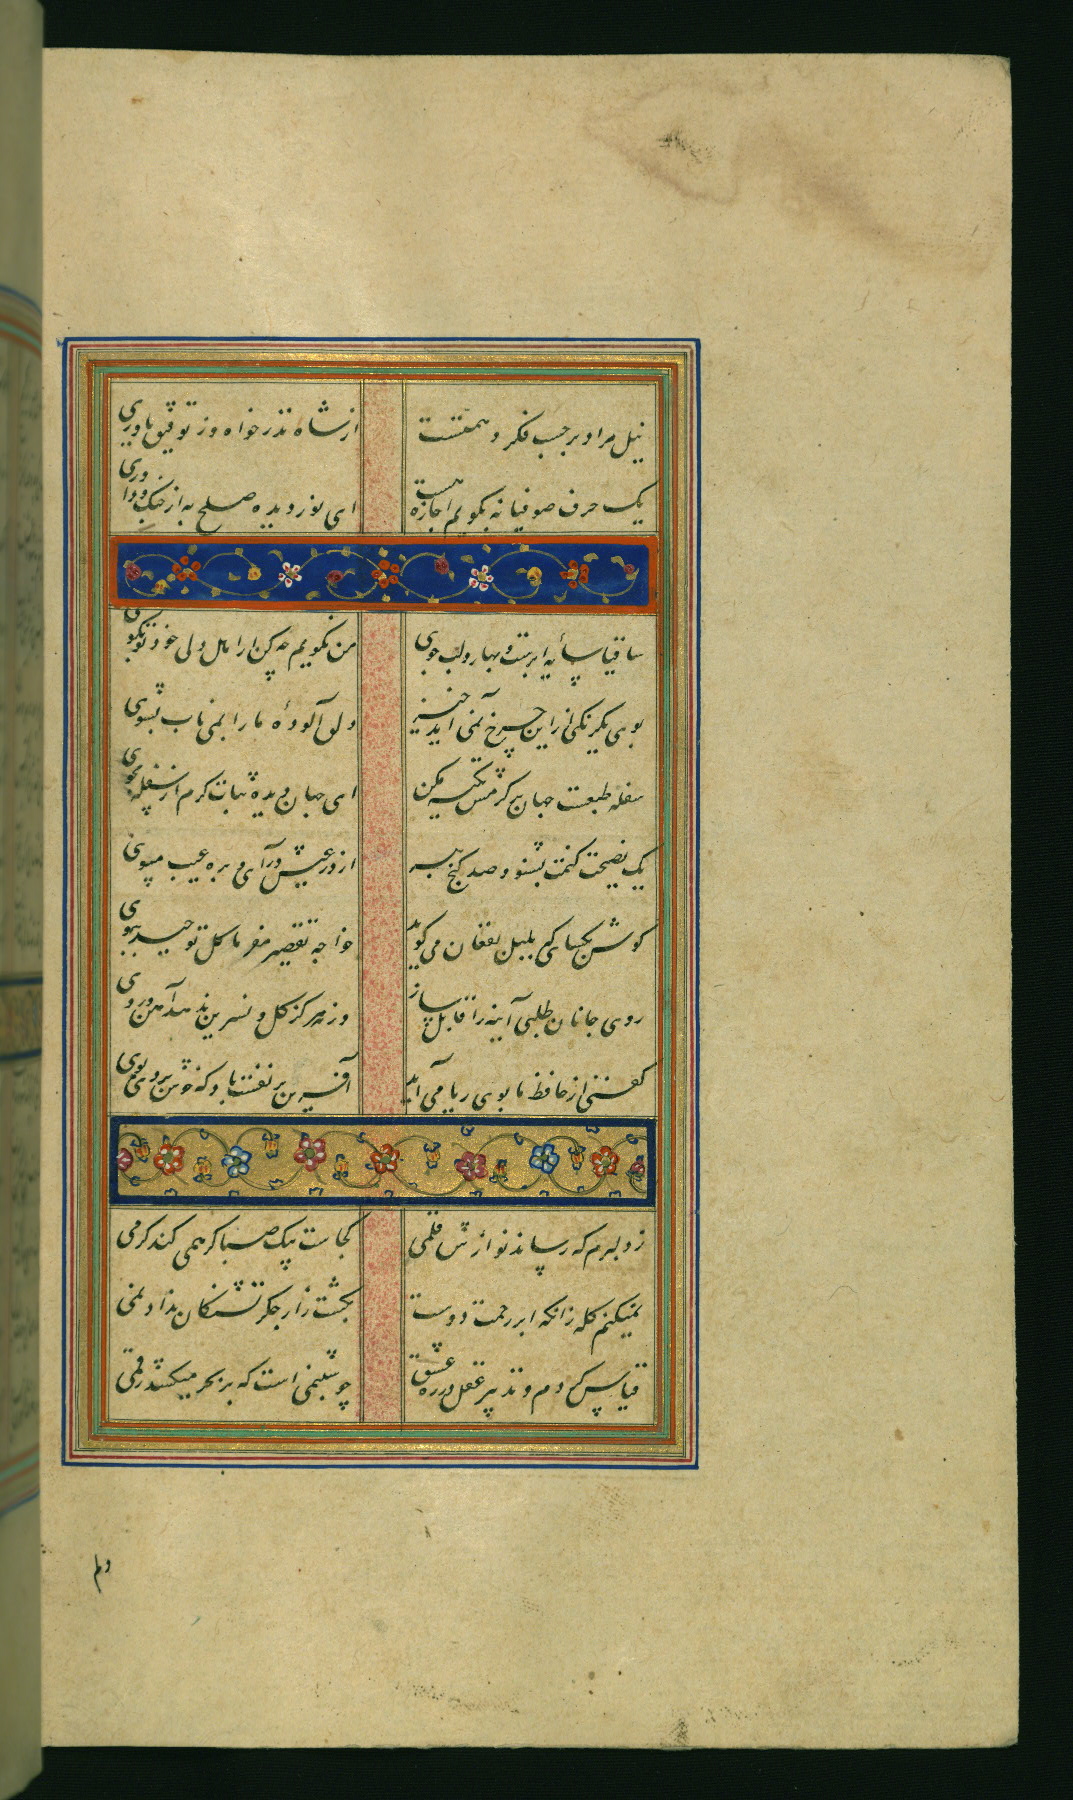 نیل مراد بر حسب فکر و همتست
از شاه نذر خواه و ز توفیق یاوری
یک حرف صوفیانه بگویم اجازه هست
ای نور دیده صلح به از جنگ و داوری
ساقیا سایه ابرست و بهار و لب جوی
من نگویم چه کن ار اهل دلی خود تو بگوی
بوی یکرنگی ازین چرخ نمی آید خیز
دلق آلوده ما را بمی ناب بشوی
سفله طبعست جهان بر کرمش تکیه مکن
ای جهان دیده ثبات کرم از سفله مجوی
یک نصیحت کنمت بشنو و صد گنج ببر
از در عیش درآی و بره عیب مپوی
گوش بگشای که بلبل بفغان می گوید
خواجه تقصیر مفرما گل توحید ببوی
روی جانان طلبی آینه را قابل ساز
ورنه هرگز گل و نسرین ندهد آهن و روی
گفتی از حافظ ما بوی ریا می آید
آفرین بر نفست باد که خوش بردی بوی
ز دلبرم که رساند نوازش قلمی
کجاست پیک صبا گر همی کند کرمی
نمیکنم گله زانکه ابر رحمت دوست
بکشت زار جگر تشنگان نداد نمی
قیاس کردم و تدبیر عقل در ره عشق
چو شبنمی است که بر بحر میکشد رقمی